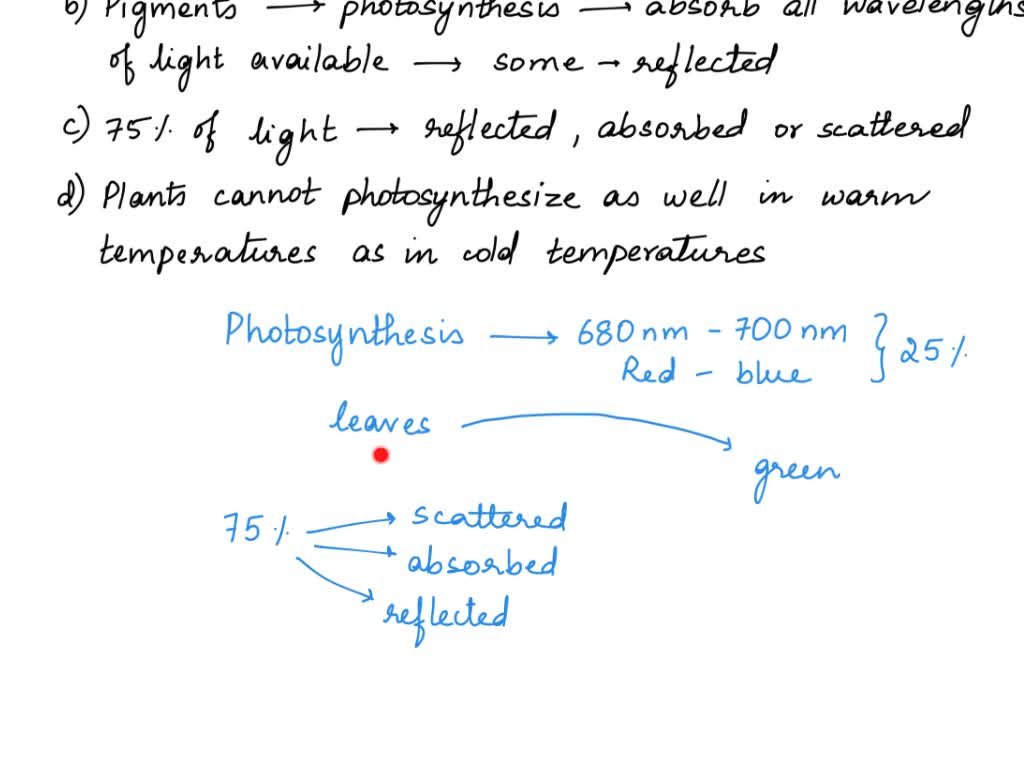 b) Pigments → photosynthesis → absorb all wavelengths
of light available → some → reflected
c) 75% of light → reflected, absorbed or scattered
d) Plants cannot photosynthesize as well in warm
temperatures as in cold temperatures
Photosynthesis → 680nm - 700nm } 25%
Red - blue
leaves → green
75% → scattered
→ absorbed
→ reflected